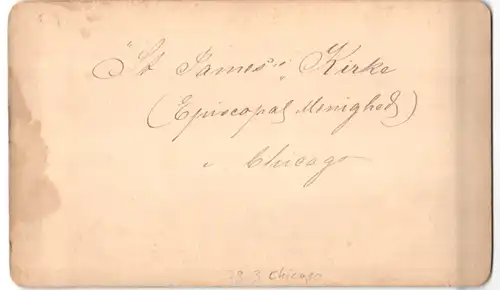 "St James" Kirke
(Episcopal Menighed)
i Chicago
Chicago